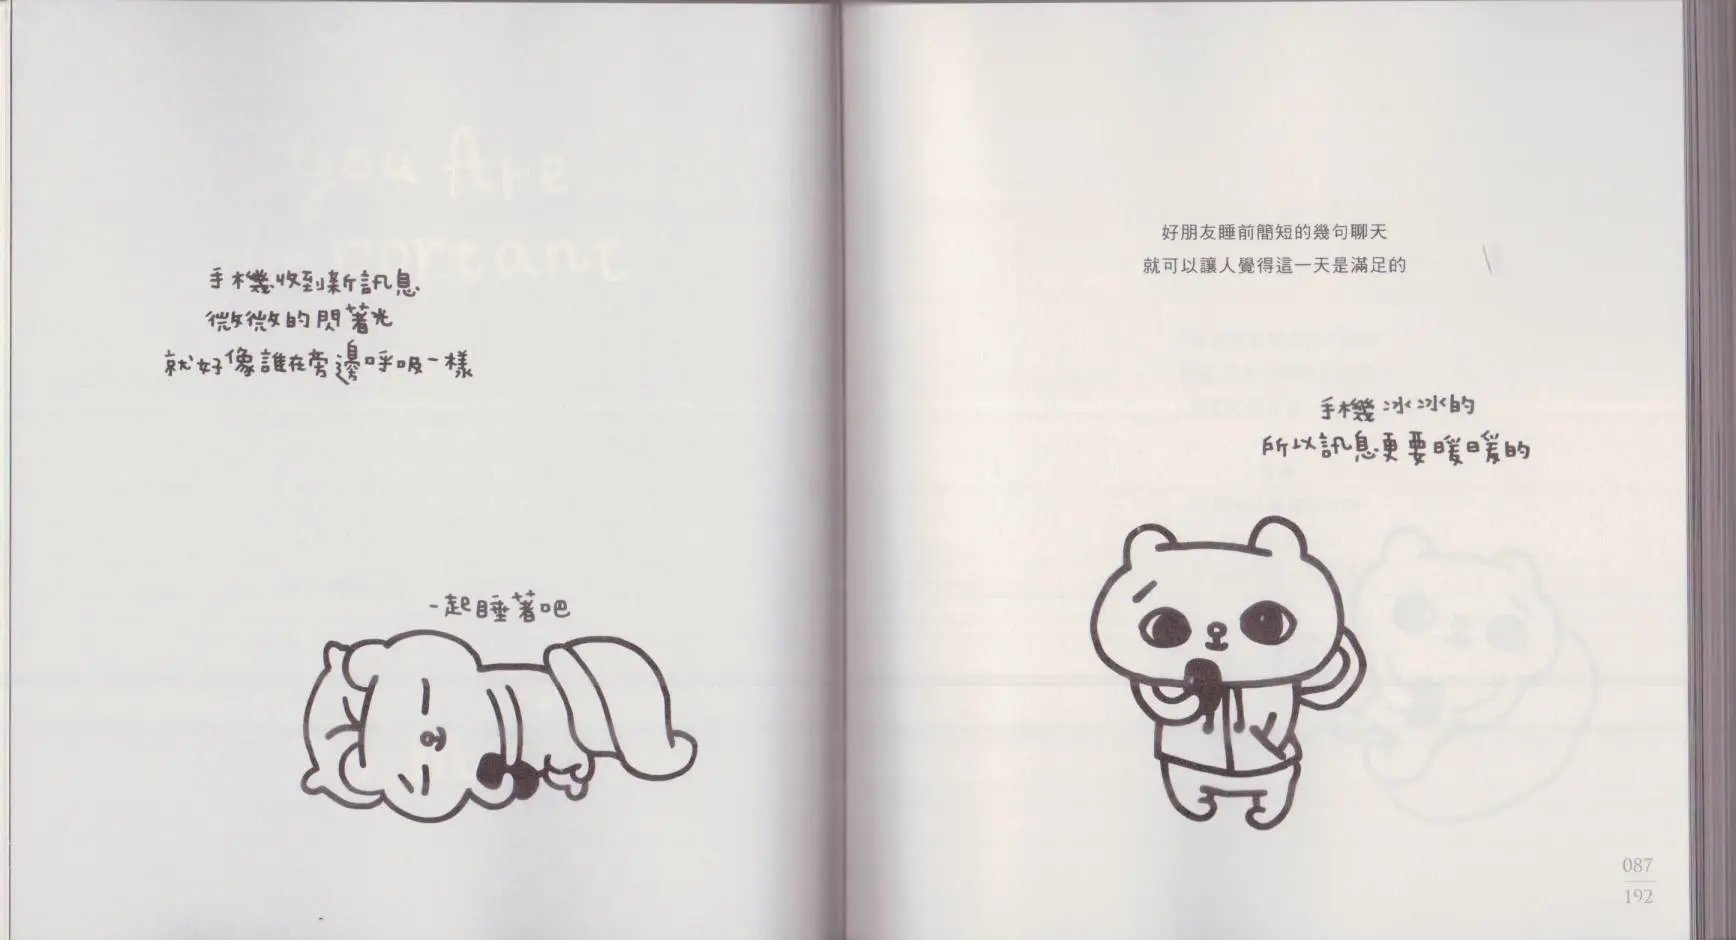 you Are
portant
手機收到新訊息
微微的閃著光
就好像誰在旁邊呼吸一樣
一起睡著吧
好朋友睡前簡短的幾句聊天
就可以讓人覺得這一天是滿足的
手機冰冰的
所以訊息更要暖暖的
087
192